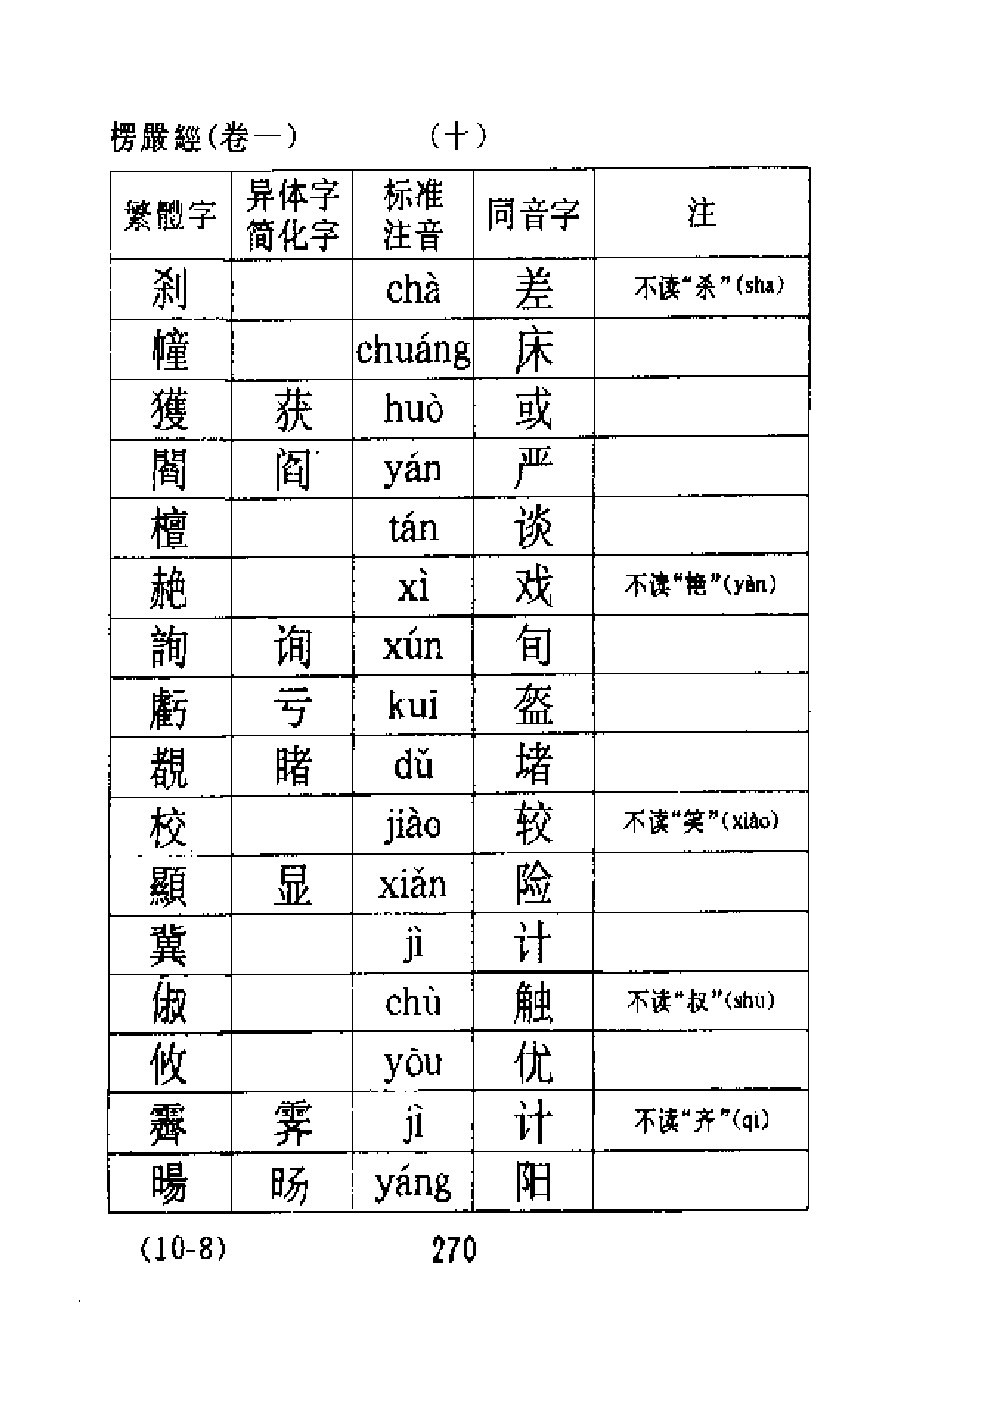 楞嚴經(卷一) (十)
繁體字 异体字简化字 标准注音 同音字 注
刹 chà 差 不读“杀”(sha)
幢 chuáng 床
獲 获 huò 或
閻 阎 yán 严
檀 tán 谈
赩 xì 戏 不读“艳”(yàn)
詢 询 xún 旬
虧 亏 kui 盔
覩 睹 dǔ 堵
校 jiào 较 不读“笑”(xiào)
顯 显 xiǎn 险
冀 jì 计
俶 chù 触 不读“叔”(shu)
攸 yōu 优
霽 霁 jì 计 不读“齐”(qi)
暘 旸 yáng 阳
(10-8) 270